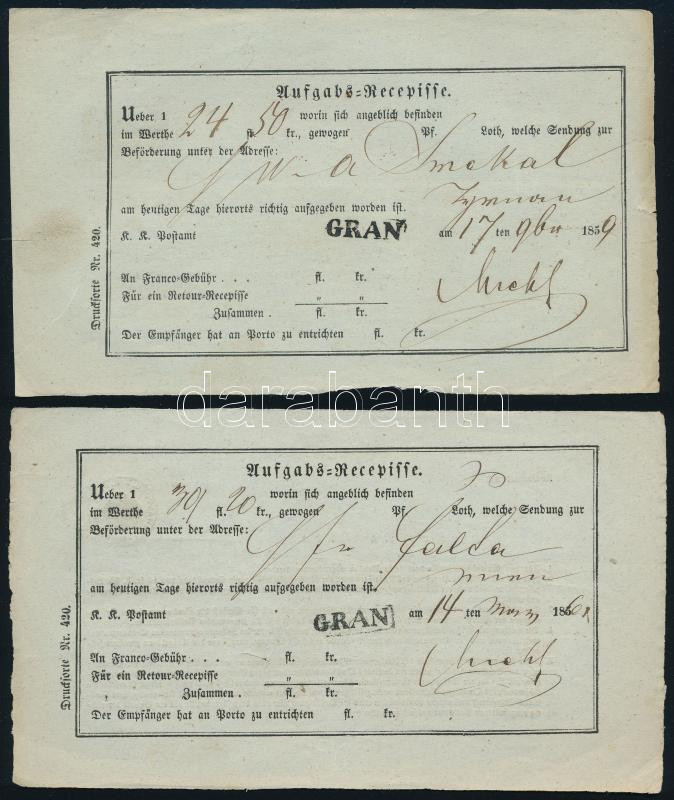 Aufgabs-Recepisse.
Ueber 1 worin sich angeblich befinden
im Werthe 24 fl. 50 kr., gewogen Pf. Loth, welche Sendung zur
Beförderung unter der Adresse:
Smekal
Tyrnau
am heutigen Tage hierorts richtig aufgegeben worden ist.
K. K. Postamt GRAN am 17 ten 9br 1859
An Franco-Gebühr . . . fl. kr.
Für ein Retour-Recepisse " "
Zusammen . fl. kr.
Der Empfänger hat an Porto zu entrichten fl. kr.
Drucksorte Nr. 420.
darabanth
Aufgabs-Recepisse.
Ueber 1 worin sich angeblich befinden
im Werthe 39 fl. 20 kr., gewogen Pf. Loth, welche Sendung zur
Beförderung unter der Adresse:
am heutigen Tage hierorts richtig aufgegeben worden ist.
K. K. Postamt GRAN am 14 ten 186
An Franco-Gebühr . . . fl. kr.
Für ein Retour-Recepisse " "
Zusammen . fl. kr.
Der Empfänger hat an Porto zu entrichten fl. kr.
Drucksorte Nr. 420.